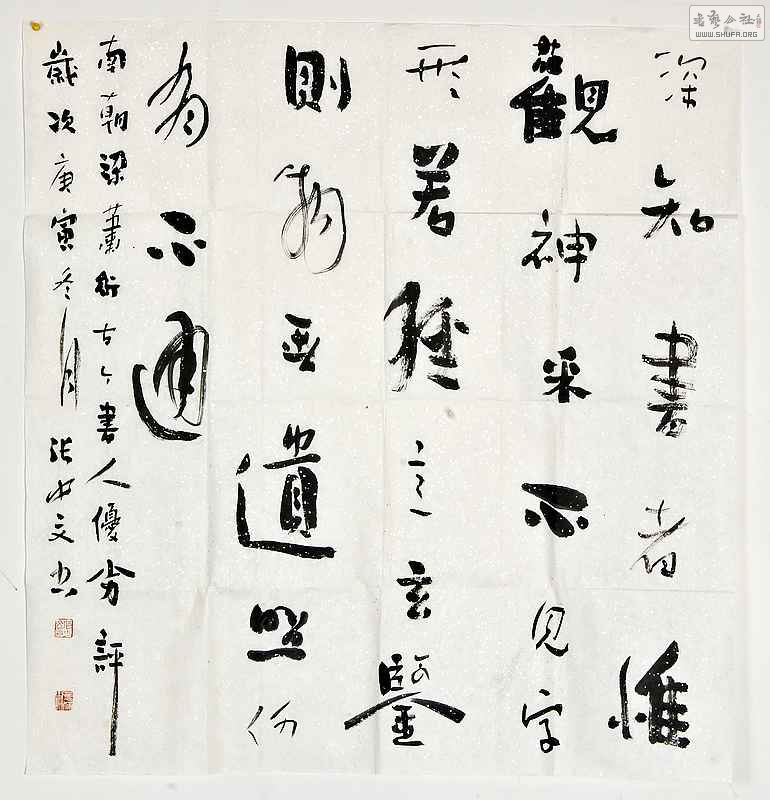 深知書者惟
觀神采不見字
形若精意玄鑒
則物無遺照何
有不通
南朝梁蕭衍古今書人優劣評
歲次庚寅冬月
书艺公社
WWW.SHUFA.ORG